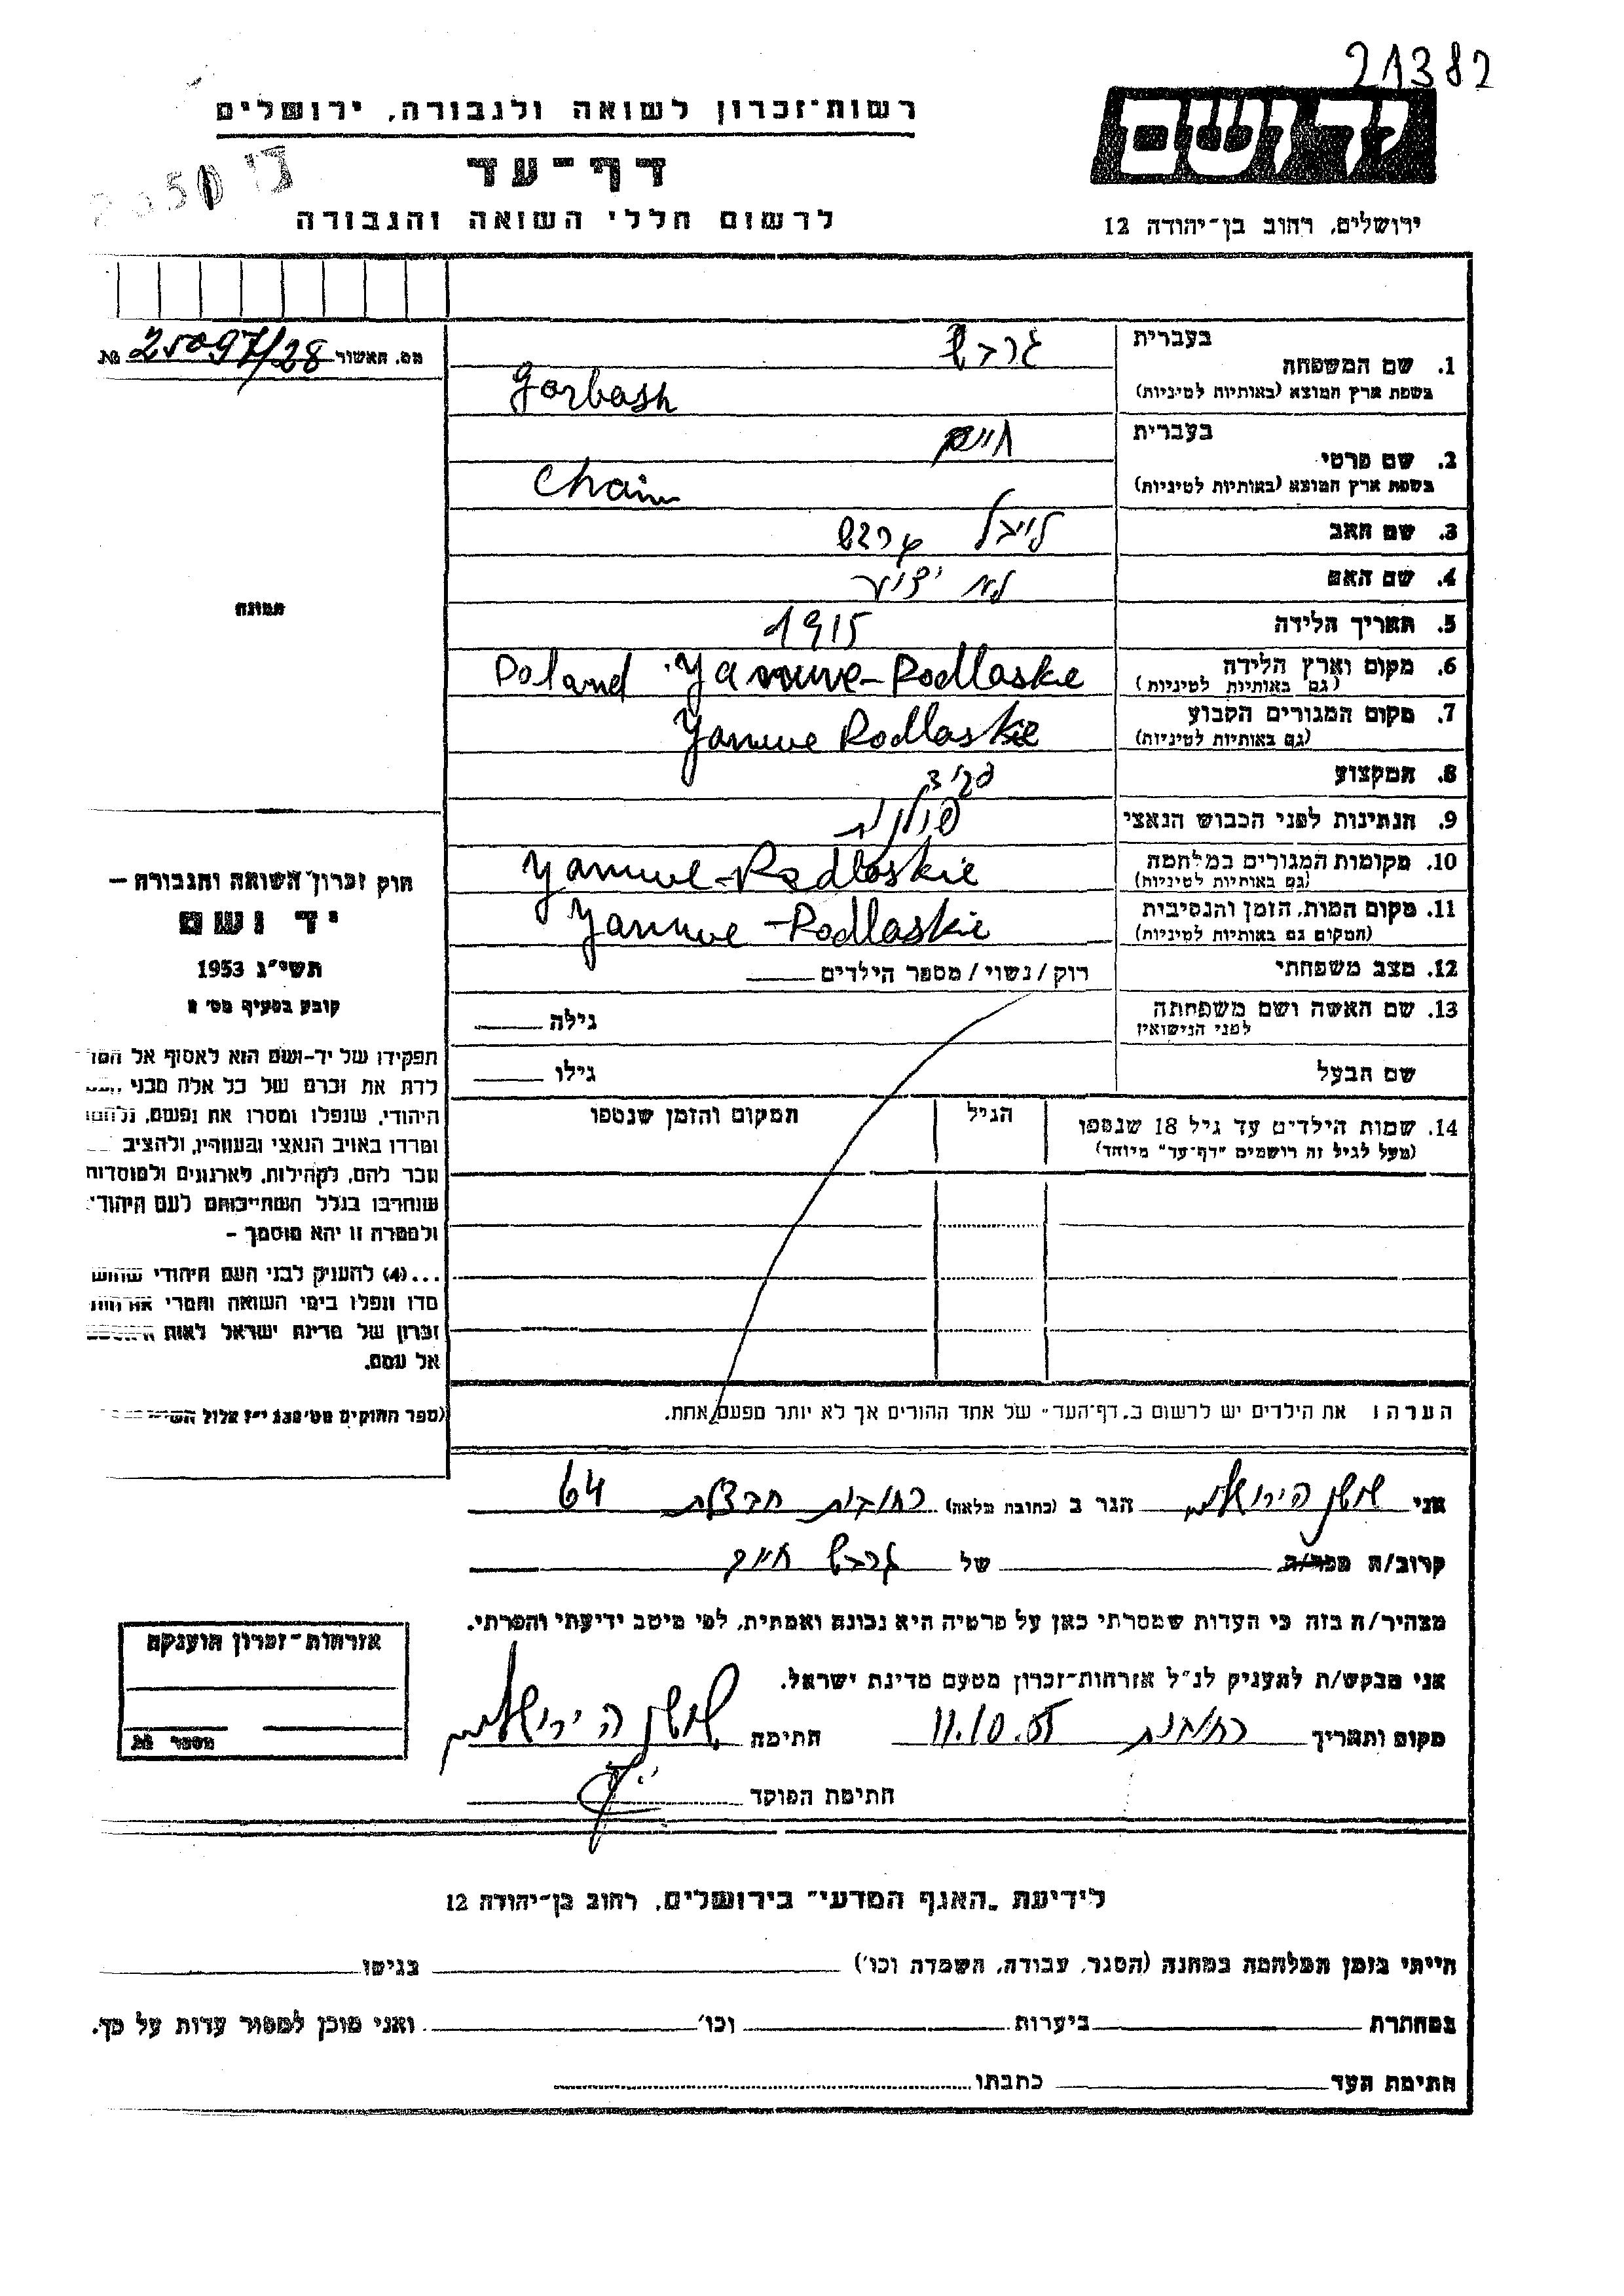 21382
רשות־זכרון לשואה ולגבורה, ירושלים
יד ושם
דף־עד
לרשום חללי השואה והגבורה
ירושלים, רחוב בן־יהודה 12
מס. האשור 25097/28 №
1. שם המשפחה
בעברית גרבש
בשפת ארץ המוצא (באותיות לטיניות) Gorbash
2. שם פרטי
בעברית חיים
בשפת ארץ המוצא (באותיות לטיניות) Chaim
3. שם האב לייבל גרבש
4. שם האם לא ידוע
5. תאריך הלידה 1915
6. מקום וארץ הלידה
(גם באותיות לטיניות) Poland Yanuve-Podlaskie
7. מקום המגורים הקבוע
(גם באותיות לטיניות) Yanuve Podlaskie
8. המקצוע
9. הנתינות לפני הכבוש הנאצי פולנית
10. מקומות המגורים במלחמה
(גם באותיות לטיניות) Yanuve-Podlaskie
11. מקום המות, הזמן והנסיבות
(המקום גם באותיות לטיניות) Yanuve-Podlaskie
12. מצב משפחתי רוק/נשוי/מספר הילדים
13. שם האשה ושם משפחתה
לפני הנישואין
גילה
שם הבעל גילו
14. שמות הילדים עד גיל 18 שנספו
(מעל לגיל זה רושמים "דף־עד" מיוחד)
הגיל
המקום והזמן שנספו
הערה: את הילדים יש לרשום ב"דף־העד" של אחד ההורים אך לא יותר מפעם אחת.
תמונה
חוק זכרון השואה והגבורה –
יד ושם
תשי"ג 1953
קובע בסעיף מס' 2
תפקידו של יד-ושם הוא לאסוף אל
לדת את זכרם של כל אלה מבני
היהודי, שנפלו ומסרו את נפשם, נלחמו
ומרדו באויב הנאצי ובעוזריו, ולהציב
זכר להם, לקהילות, לארגונים ולמוסדות
שנחרבו בגלל השתייכותם לעם היהודי
ולמטרה זו יהא מוסמך –
...(4) להעניק לבני העם היהודי שהוש
מדו ונפלו בימי השואה והמרי אזרחות
זכרון של מדינת ישראל לאות
אל עמם.
(ספר החוקים מס' 132 י"ז אלול
אני שושן הירושלמי הגר ב (כתובת מלאה) רחובות חבצלת 64
קרוב/ה מכר/ה של גרבש חיים
מצהיר/ה בזה כי העדות שמסרתי כאן על פרטיה היא נכונה ואמתית, לפי מיטב ידיעתי והכרתי.
אני מבקש/ת להעניק לנ"ל אזרחות-זכרון מטעם מדינת ישראל.
מקום ותאריך רחובות 11.10.55 חתימה שושן הירושלמי
חתימת הפוקד
אזרחות-זכרון הוענקה
מספר №
לידיעת "האגף המדעי" בירושלים, רחוב בן-יהודה 12
הייתי בזמן המלחמה במחנה (הסגר, עבודה, השמדה וכו') בגיטו
במחתרת ביערות וכו' ואני מוכן למסור עדות על כך.
חתימת העד כתבתו